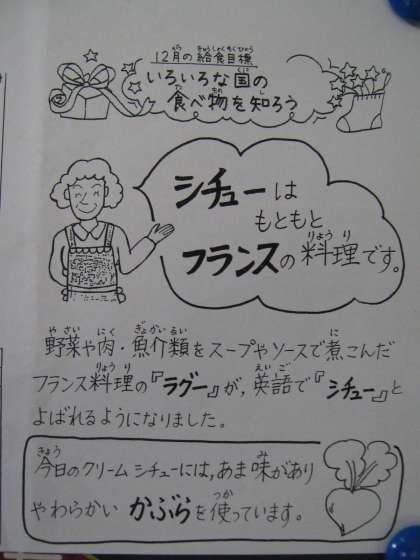 12月の給食目標
いろいろな国の
食べ物を知ろう
シチューは
もともと
フランスの料理です。
野菜や肉・魚介類をスープやソースで煮こんだ
フランス料理の『ラグー』が、英語で『シチュー』と
よばれるようになりました。
今日のクリームシチューには、あま味があり
やわらかいかぶらを使っています。